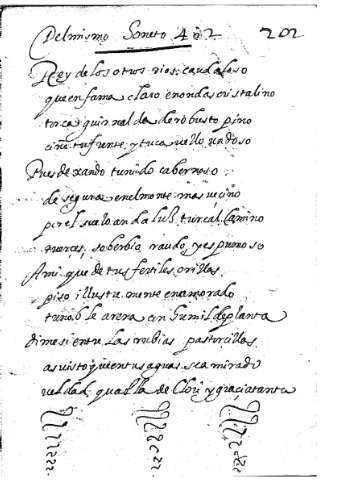 Del mismo Soneto 402 202
Rey de los otros rios, caudaloso
que en fama claro en ondas cristalino
tosca guirnalda de robusto pino
ciñe tu frente, y tu cavello undoso
Pues dexando tu nido cabernoso
de segura en el monte mas vecino
por el suelo andaluz tu real camino
tuerçes soberbio raudo, y espumoso
A mi que de tus fertiles orillas
piso illustremente enamorado
tu noble arena con humilde planta
dime si entre las rubias pastorcillas
as visto q en tus aguas se a mirado
veldad qual la de Clori y gracia tanta